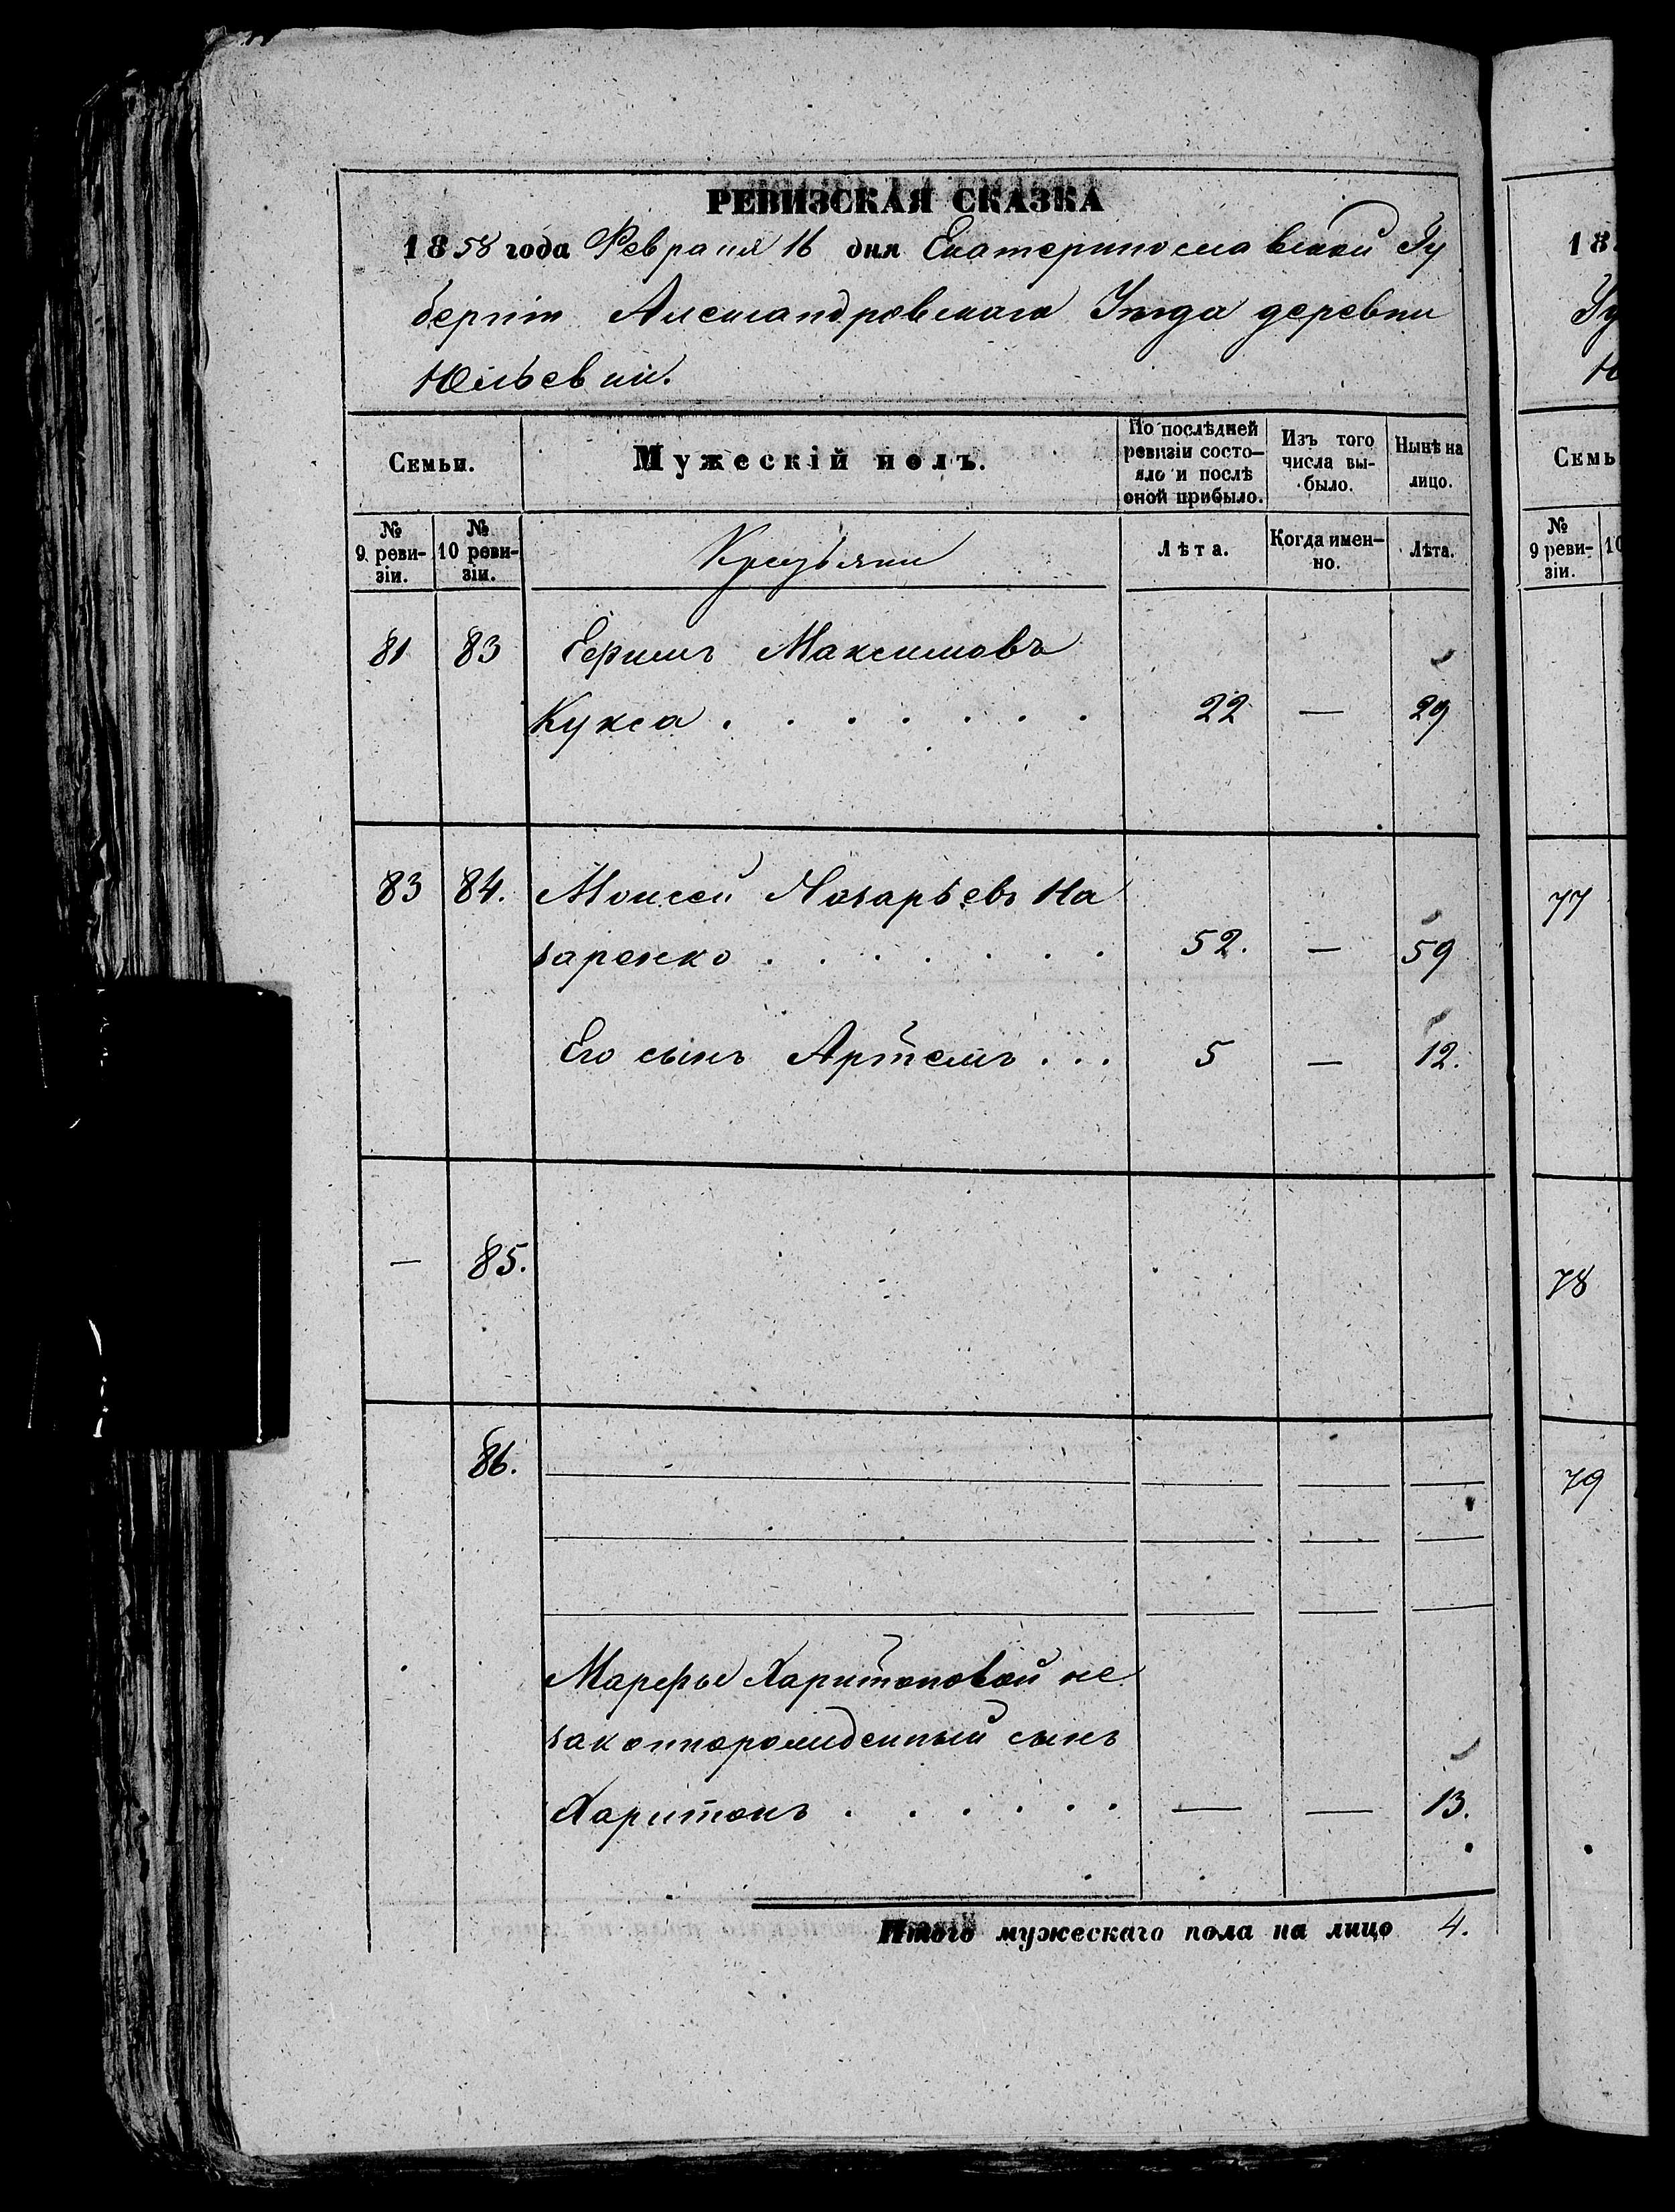 РЕВИЗСКАЯ СКАЗКА
1858 года Февраля 16 дня Екатеринославской Гу
берніи Александровскаго Уѣзда деревни
Юльевки.
Семьи.
Мужескій полъ.
По послѣдней ревизіи состо-яло и послѣ оной прибыло.
Изъ того числа вы-было.
Нынѣ на лицо.
№ 9 реви-зіи.
№ 10 реви-зіи.
Крестьяни
Лѣта.
Когда имен-но.
Лѣта.
81 83 Ефимъ Максимовъ
Кукса . . . . . . . 22 — 29
83 84. Моисей Назарьевъ На
заренко . . . . . . . 52. — 59
Его сынъ Артемъ . . . 5 — 12.
— 85.
86.
Марфы Харитоновой не
законнорожденный сынъ
Харитонъ . . . . . . — — 13.
Итого мужескаго пола на лицо 4.
18
Гу
Ю
Семь
№ 9 реви-зіи.
10
77
78
79